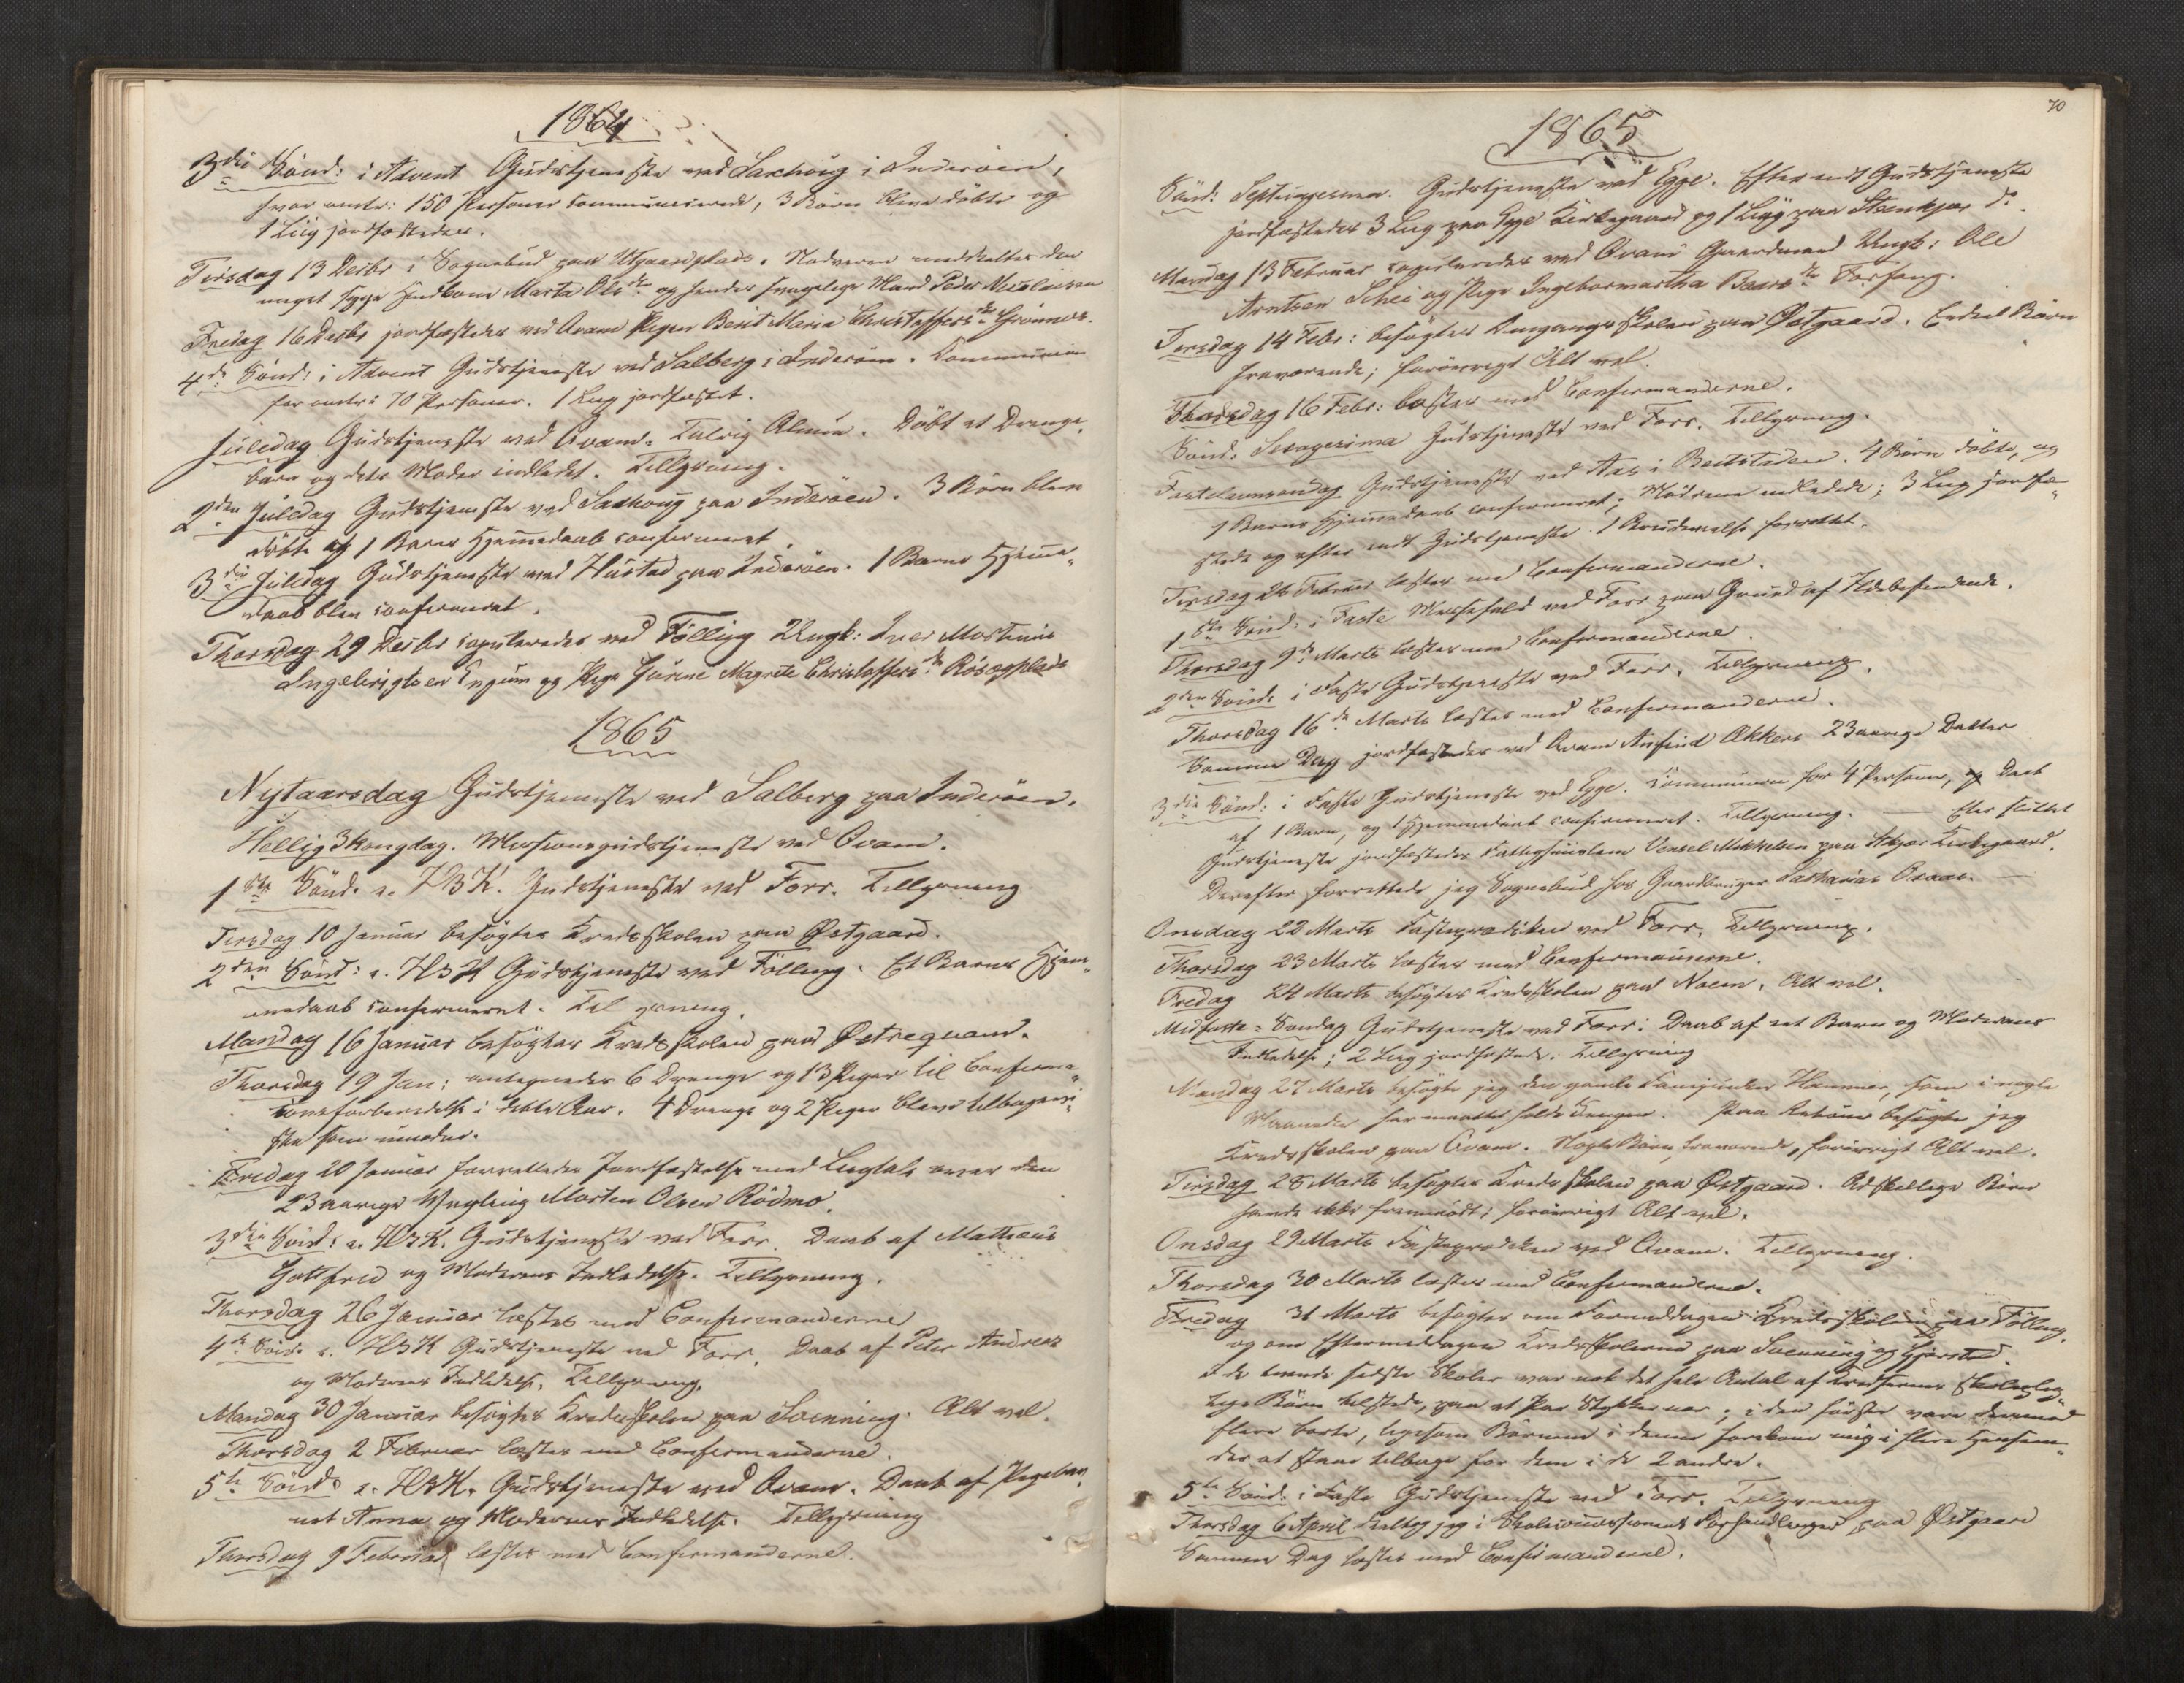 1864
3die Sønd: i Advent Gudstjeneste ved Saxhoug i Inderøen,
hvor omtr: 150 Personer communicerede, 3 Børn bleve døbte og
1 Liig jordfæstedes.
Tirsdag 13 Decbr i Sognebud paa Utgaardplads. Nadveren meddeltes den
meget syge Marta Ols dtr og hendes svagelige Mand Peder Nicolaisen
Fredag 16 Decbr jordfæstedes ved Qvam Pigen Berit Maria Christoffers dtr
4de Sønd: i Advent Gudstjeneste ved Salberg i Inderøen. Communion
for omtr: 70 Personer. 1 Liig jordfæstet.
Juledag Gudstjeneste ved Qvam. Talrig Almue. Døbt et Drenge-
barn og dets Moder indledet. Tillysning.
2den Juledag Gudstjeneste ved Saxhoug paa Inderøen. 3 Børn bleve
døbte og 1 Barns Hjemmedaab confirmeret.
3die Juledag Gudstjeneste ved Hustad paa Inderøen. 1 Barns Hjemme-
daab blev confirmeret.
Thorsdag 29 Decbr copuleredes ved Følling Ungk: Iver Mostinus
Ingebrigtsen og Pige Jørine Magrete Christoffers dtr
1865
Nytaarsdag Gudstjeneste ved Salberg paa Inderøen.
Hellig 3 kongdag. Missionsgudstjeneste ved Qvam.
1ste Sønd. e. H3K. Gudstjeneste ved Forr. Tillysning
Tirsdag 10 Januar besøgtes Kredsskolen paa Østgaard.
2den Sønd: e. H3K Gudstjeneste ved Følling. Et Barns Hjem-
medaab confirmeret. Tillysning.
Mandag 16 Januar besøgtes Kredsskolen paa Østrequam.
Thorsdag 19 Jan: antegnedes 6 Drenge og 13 Piger til Confirma-
tionsforberedelse i dette Aar. 4 Drenge og 2 Piger bleve tilbagevi-
ste som umodne.
Fredag 20 Januar forrettedes Jordfæstelse med Liigtale over den
23 aarige Yngling Morten Olsen Rødmo.
3die Sønd: e. H3K. Gudstjeneste ved Forr. Daab af Mathæus
Gottfred og Moderens Indledelse. Tillysning.
Thorsdag 26 Januar læstes med Confirmanderne
4de Sønd. e. H3K Gudstjeneste ved Forr. Daab af Peter Andreas
og Moderens Indledelse. Tillysning.
Mandag 30 Januar besøgtes Kredsskolen paa Svenning. Alt vel.
Thorsdag 2 Februar læstes med Confirmanderne.
5te Sønd e. H3K. Gudstjeneste ved Qvam. Daab af Pigebar-
net Anna og Moderens Indledelse. Tillysning
Thorsdag 9 Februar læstes med Confirmanderne.
70
1865
Sønd: Septuagesima. Gudstjeneste ved Egge. Efter endt Gudstjeneste
jordfæstedes 3 Liig paa Egge Kirkegaard og 1 Liig paa Steenkjær do.
Mandag 13 Februar copuleredes ved Qvam Gaardmand Ungk: Ole
Arntsen Schei og Pige Ingebormartha dtr
Tirsdag 14 Febr: besøgtes Omgangsskolen paa Østgaard. Endeel Børn
fraværende; forøvrigt Alt vel.
Thorsdag 16 Febr: læstes med Confirmanderne.
Sønd: Sexagesima Gudstjeneste ved Forr. Tillysning.
Fastelavnsøndag Gudstjeneste ved Aas i Beitstaden. 4 Børn døbte, og
1 Barns Hjemmedaab confirmeret; Mødrene indledede; 3 Liig jordfæ-
stede og efter endt Gudstjeneste. 1 Brudevielse forrettet.
Tirsdag Februar læstes med Confirmanderne.
1ste Sønd: i Faste Messefald ved Forr paa Grund af Ildebefindende.
Thorsdag 9de Marts læstes med Confirmanderne.
2den Sønd: i Faste Gudstjeneste ved Forr. Tillysning.
Thorsdag 16de Marts læstes med Confirmanderne.
Samme Dag jordfæstedes ved Qvam Anfind Akkers 23 aarige Datter
3die Sønd: i Faste Gudstjeneste ved Egge. Communion for 4 Personer, Daab
af 1 Barn, og 1 Hjemmedaab confirmeret. Tillysning. — Efter sluttet
Gudstjeneste jordfæstedes Vensel Mikkelsen paa Kirkegaard.
Derefter forrettede jeg Sognebud hos Gaardbruger Sacharias
Onsdag 22 Marts Fasteprædiken ved Forr. Tillysning.
Thorsdag 23 Marts læstes med Confirmanderne.
Fredag 24 Marts besøgtes Kredsskolen paa Noem. Alt vel.
Midfaste-Søndag Gudstjeneste ved Forr: Daab af eet Barn og Moderens
Indledelse; 2 Liig jordfæstede. Tillysning
Mandag 27 Marts besøgte jeg den gamle Hammer, som i nogle
Maaneder har maattet holde Sengen. Paa Returen besøgte jeg
Kredsskolen paa Qvam. Nogle Børn fraværende, forøvrigt Alt vel.
Tirsdag 28 Marts besøgtes Kredsskolen paa Østgaard. Adskillige Børn
havde ikke fremmødt; forøvrigt Alt vel.
Onsdag 29 Marts Fasteprædiken ved Qvam. Tillysning.
Thorsdag 30 Marts læstes med Confirmanderne.
Fredag 31 Marts besøgtes om Formiddagen Kredsskolen paa Følling,
og om Eftermiddagen Kredsskolerne paa Svenning og Gjørstad.
I de tvende sidste Skoler var nok det hele Antal af Kredsernes skoleplig-
tige Børn tilstede, paa et Par Stykker nær; i den første vare derimod
flere borte, ligesom Børnene i denne forekom mig i flere Hensen-
der at staae tilbage for dem i de 2 andre.
5te Sønd: i Faste Gudstjeneste ved Forr. Tillysning
Thorsdag 6 April deeltog jeg i Skolecommissionens Forhandlinger paa Østgaard
Samme Dag læstes med Confirmanderne.